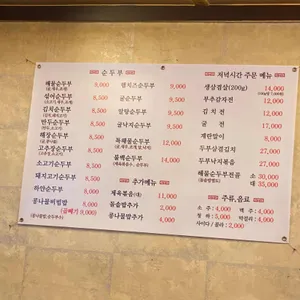 순두부
해물순두부 9,000
섞어순두부 8,500
김치순두부 8,500
만두순두부 8,500
해장순두부 8,500
고추장순두부 8,500
소고기순두부 9,500
돼지고기순두부 8,500
하얀순두부 8,000
콩나물비빔밥 8,000
(곱빼기 9,000)
햄치즈순두부 9,000
굴순두부 9,500
알탕순두부 9,500
굴낙지순두부 9,500
육해물순두부 10,000
들깨순두부 9,500
추가메뉴
제육볶음(소) 11,000
돌솥밥추가 2,000
콩나물밥추가 4,000
저녁시간 주문 메뉴
생삼겹살(200g) 14,000
부추감자전 12,000
김치전 12,000
굴전 17,000
계란말이 8,000
두부삼겹김치 27,000
두부낙지볶음 27,000
해물순두부전골 소 30,000
대 35,000
주류,음료
소주 4,000 맥주 4,000
청하 5,000 막걸리 4,000
사이다 / 콜라 2,000